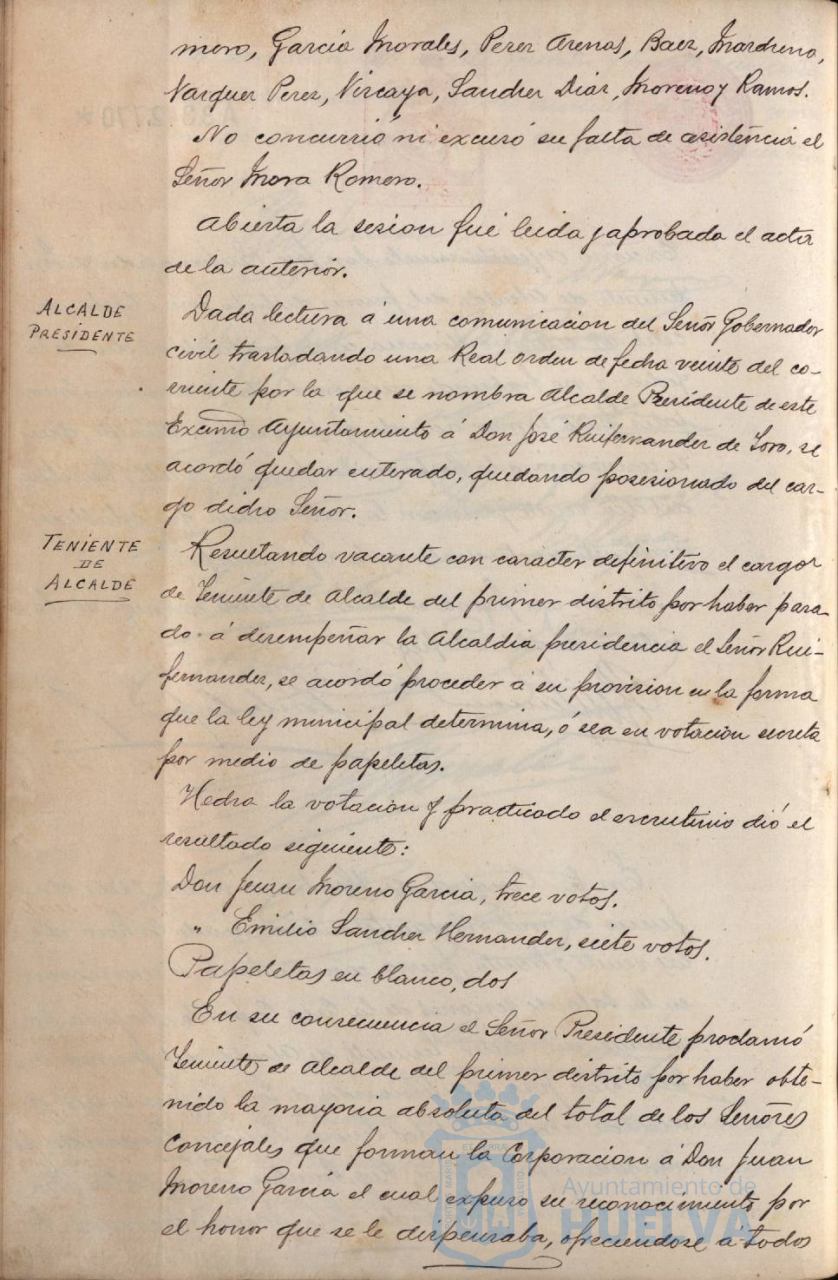 mero, García Morales, Perez Arenas, Baez, Mardreno,
Vazquez Perez, Vizcaya, Sanchez Diaz, Moreno y Ramos.
No concurrió ni excusó su falta de asistencia el
Señor Mora Romero.
Abierta la sesion fué leida y aprobada el acta
de la anterior.
ALCALDE
PRESIDENTE
Dada lectura á una comunicacion del Señor Gobernador
civil trasladando una Real orden de fecha veinte del co-
rriente por la que se nombra Alcalde Presidente de este
Excmo Ayuntamiento á Don José Ruifernandez de Toro, se
acordó quedar enterado, quedando posesionado del car-
go dicho Señor.
TENIENTE
DE
ALCALDE
Resultando vacante con caracter definitivo el cargo
de Teniente de Alcalde del primer distrito por haber pasa-
do á desempeñar la Alcaldia presidencia el Señor Rui-
fernandez, se acordó proceder á su provision en la forma
que la ley municipal determina, ó sea en votacion secreta
por medio de papeletas.
Hecha la votacion y practicado el escrutinio dió el
resultado siguiente:
Don Juan Moreno Garcia, trece votos.
" Emilio Sanchez Hernandez, siete votos.
Papeletas en blanco, dos
En su consecuencia el Señor Presidente proclamó
Teniente de Alcalde del primer distrito por haber obte-
nido la mayoria absoluta del total de los Señores
Concejales que forman la Corporacion á Don Juan
Moreno Garcia el cual expuso su reconocimiento por
el honor que se le dispensaba, ofreciendose a todos
Ayuntamiento de
HUELVA